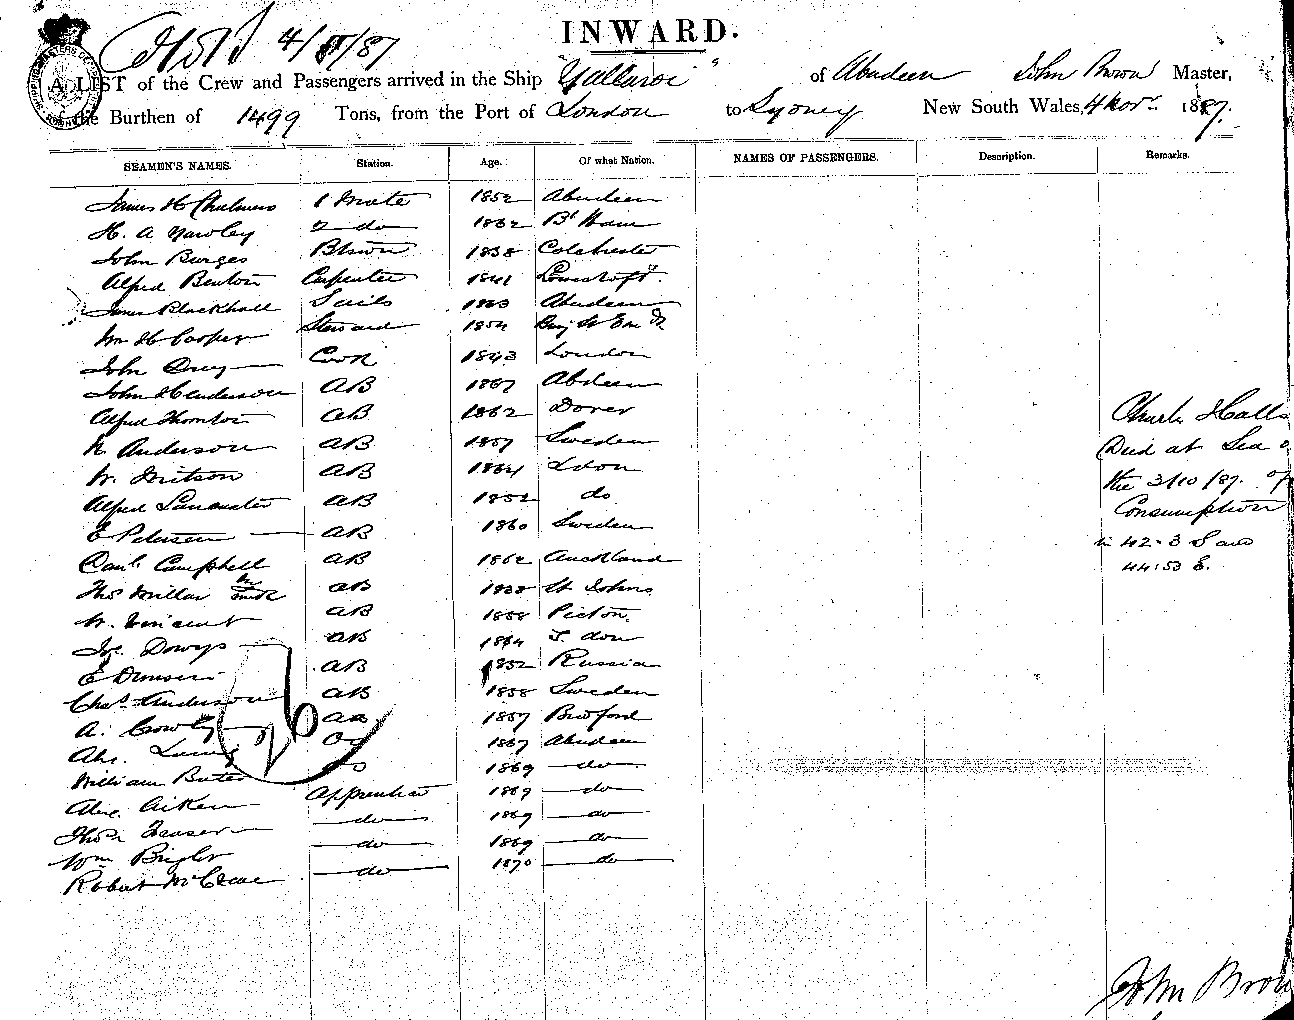 INWARD.
4/11/87
A LIST of the Crew and Passengers arrived in the Ship "Yallaroi" of Aberdeen John Brown Master,
of the Burthen of 1499 Tons, from the Port of London to Sydney New South Wales, 4 Novr 1887.
SEAMEN'S NAMES. Station. Age. Of what Nation. NAMES OF PASSENGERS. Description. Remarks.
James H Chalmers 1 Mate 1852 Aberdeen
H. A 2 do 1862 B'Ham
John Burges Btswn 1838 Colchester
Alfred Benton Carpenter 1841 Lowestoft
James Blackhall Sails 1863 Aberdeen
Wm H Cooper Steward 1854 Bury St Ed
John Cook 1843 London
John Henderson AB 1867 Abdeen
Alfred Thornton AB 1862 Dover
N Anderson AB 1857 Sweden
W. Mitson AB 1864 Ldon
Alfred Lancaster AB 1852 do
E Petersen AB 1860 Sweden
Danl Campbell AB 1862 Auckland
Thos Millar AB St Johns
W. Vincent AB 1858 Picton.
Jos. Dowys AB 1864
E AB 1852 Russia
Chas Anderson AB 1858 Sweden
A. Crowley AB 1857
Alx. Laing OS 1867 Aberdeen
William Buter 1869 do
Alex. Aitken Apprentice 1869 do
Thos Fraser do 1869 do
Wm do 1869 do
Robert McCrae do 1870 do
26
Charles Halls
Died at Sea
the 3/10/87. of
Consumption
in 42.3 S and
44.53 E.
John Brown